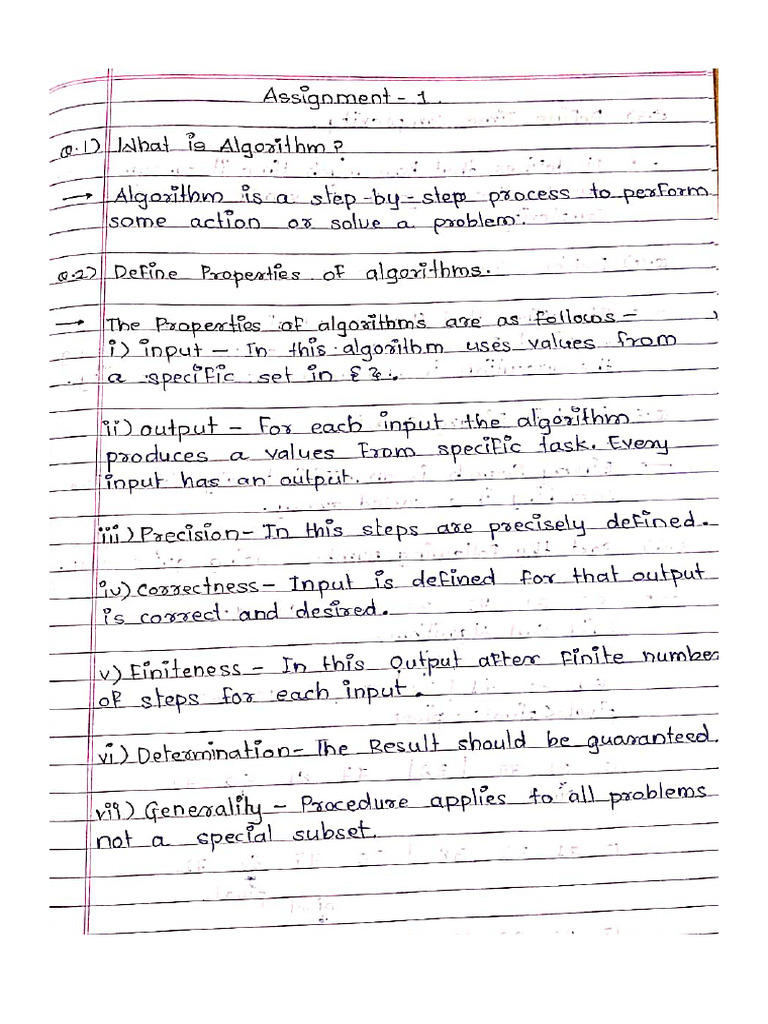 Assignment - 1.
Q.1) What is Algorithm?
→ Algorithm is a step-by-step process to perform
some action or solve a problem.
Q.2) Define Properties of algorithms.
→ The Properties of algorithms are as follows -
i) input - In this algorithm uses values from
a specific set in { }.
ii) output - For each input the algorithm
produces a values from specific task. Every
input has an output.
iii) Precision - In this steps are precisely defined.
iv) Correctness - Input is defined for that output
is correct and desired.
v) Finiteness - In this output after finite number
of steps for each input.
vi) Determination - The Result should be guaranteed.
vii) Generality - Procedure applies to all problems
not a special subset.